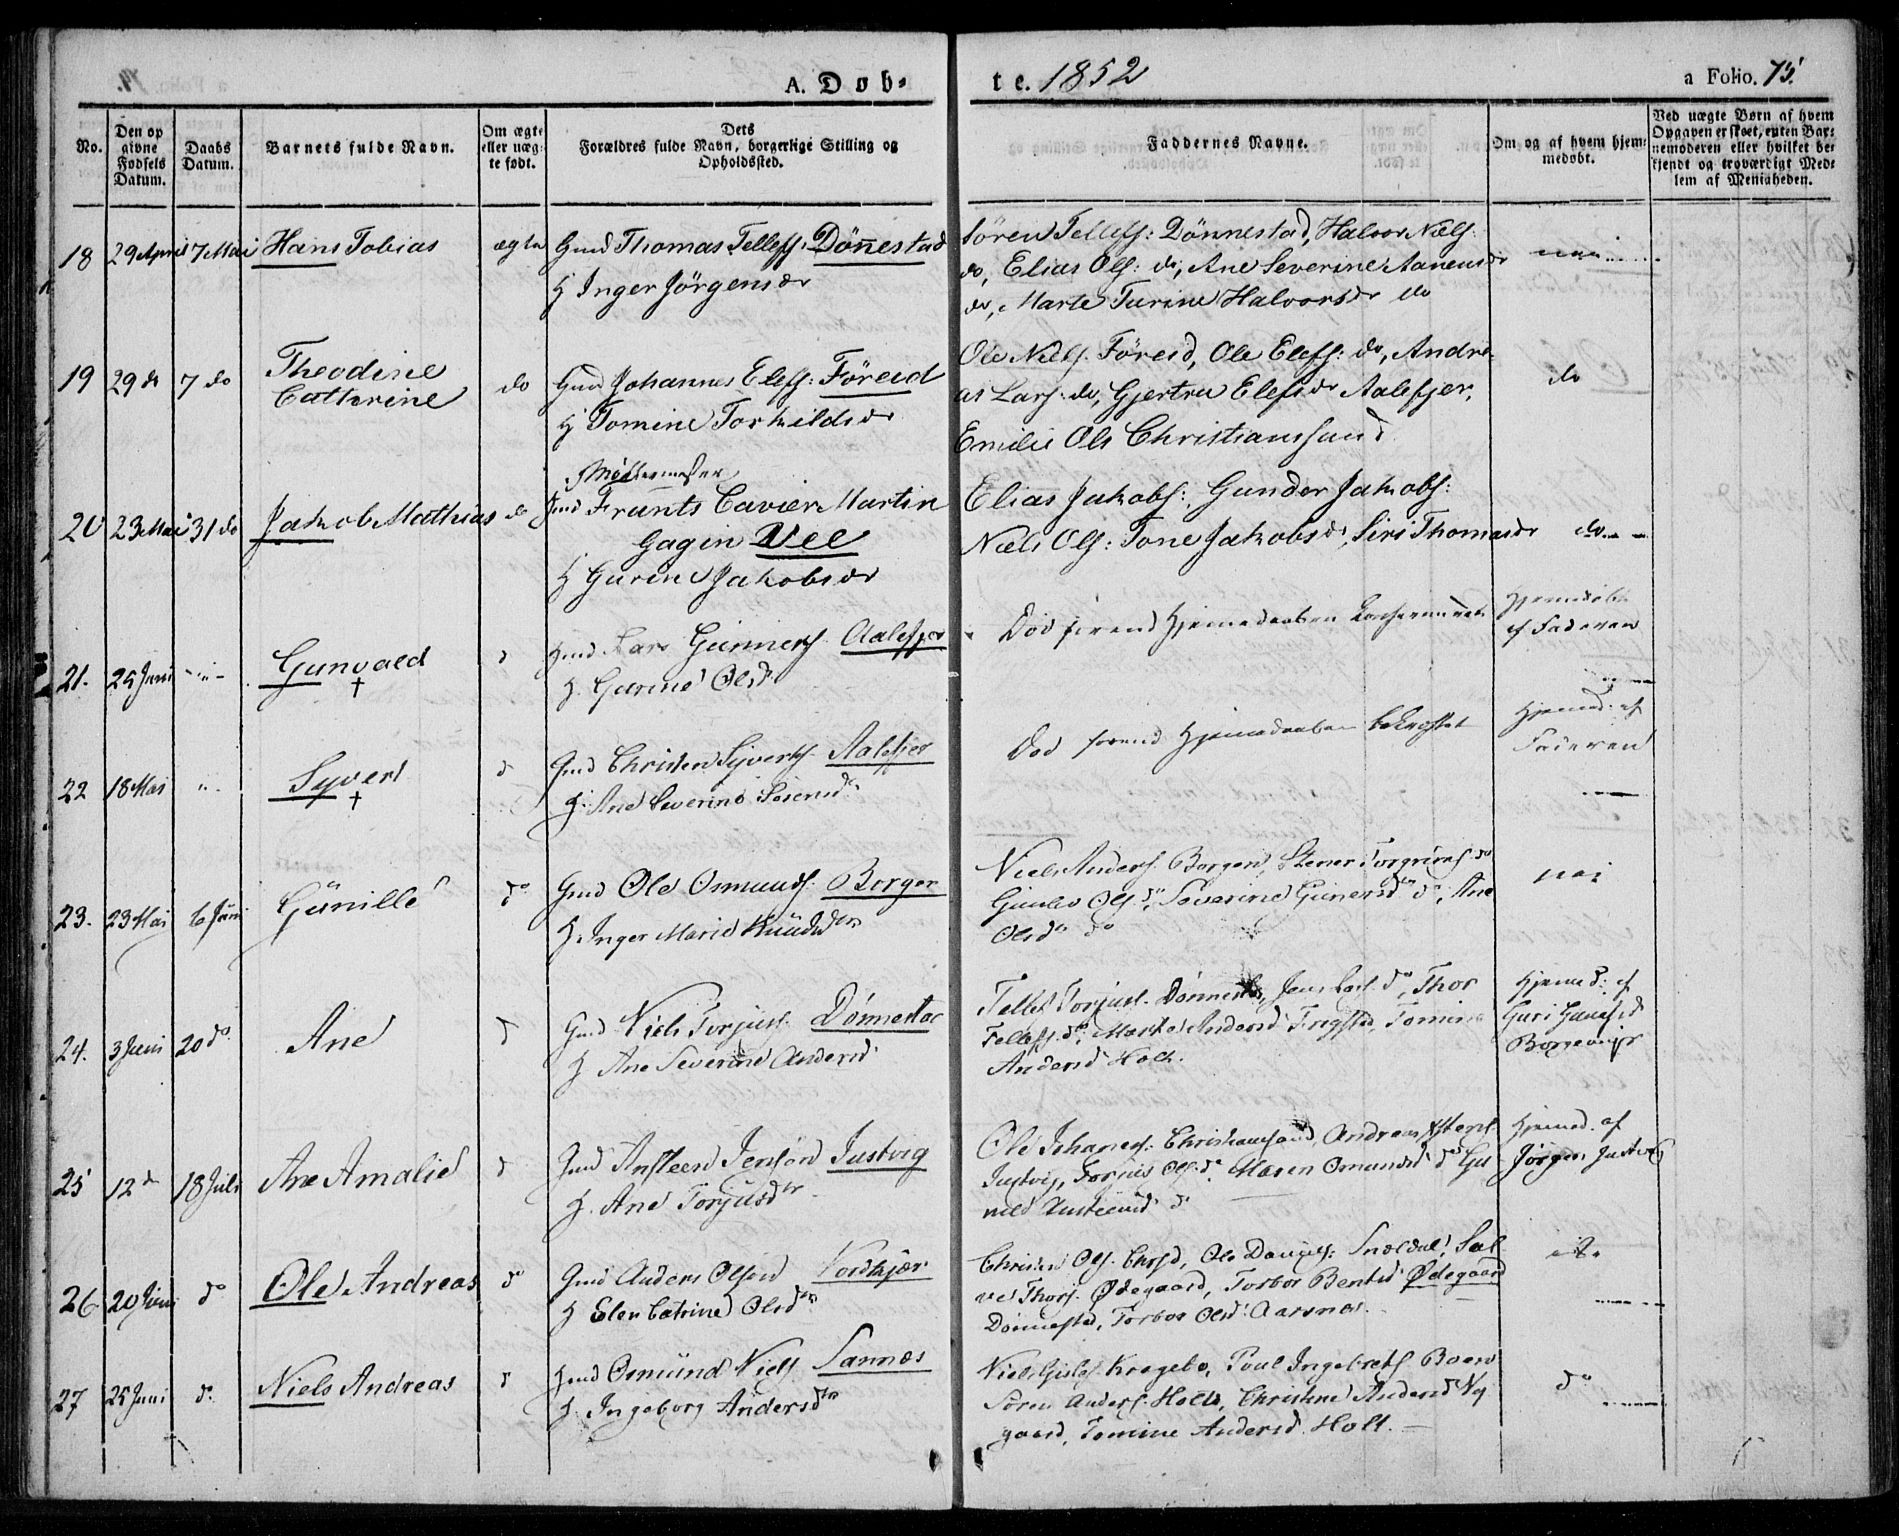 A. Døb-
te. 1852
a Folio. 75.
No.
Den op
givne
Fødsels
Datum.
Daabs
Datum.
Barnets fulde Navn.
Om ægte
eller uæg-
te født.
Dets
Forældres fulde Navn, borgerlige Stilling og
Opholdssted.
Faddernes Navne.
Om og af hvem hjem-
medøbt.
Ved uægte Børn af hvem
Opgaven er skeet, enten Bar-
nemoderen eller hvilket be-
kjendt og troværdigt Med-
lem af Menigheden.
18 29 April 7 Mai Hans Tobias ægte Gmd Thomas Tellefs: Dønnestad
H Inger Jörgensdr
Sören Tellefs: Dønnestad, Halvor Niels:
do, Elias Ols: do, Ane Severine Aanensdr
do, Marte Turine Halvorsdr do
nei
19 29 do 7 do Theodine
Cathrine
do Gmd Johannes Elefs: Föreid
H Tomine Torkildsdr
Ole Niels: Föreid, Ole Elefs: do, Andre-
as Lars: do, Gjertru Elefsdr Aalefjer,
Emilie Ols Christianssand
do
20 23 Mai 31 do Jakob Mathias do
Møllermester
Gmd Frants Cavier Martin
Gagin Vee
H Gurine Jakobsdr
Elias Jakobs: Gunder Jakobs:
Niels Ols: Tone Jakobsdr, Siri Thomasdr
do
21. 25 Juni Gunvald † d Gmd Lars Gunners. Aalefjer
H. Gurine Olsd
Död förend Hjemedaaben
Hjemdöbt
af Faderen
22 18 Mai Syvert † d Gmd Christen Syverts. Aalefjer
H. Ane Severine
Död forend Hjemedaaben bekræftet
Hjemmed. af
Faderen
23. 23 Mai 6 Juni Günille do Gmd Ole Osmunds. Borgen
H. Inger Marie Knudsdtr
Niels Anders. Borgen, Stener Torgrims do
Gunlev Ols do, Severine Gunersd do, Ane
Olsdr do
nei
24. 3 Juni 20 do Ane d Gmd Niels Torjus. Dønnestad
H Ane Severine Andersd
Tellef Torjus. Dönnestad, Jens Lars. do, Thor
Tellefs. do, Marte Andersd Tomine
Andersd Holt.
Hjemed. af
Guri
25 12 do 18 Juli Ane Amalie d Gmd Ansteen Jensøn Justvig
H. Ane Torjusdtr
Ole Johanes. Christianssand, Andreas
Justvig, Torjus Ols. do, Maren Osmundsd do Gu-
nild d
Hjemed. af
Jörgen Justvig
26 20 Juni do Ole Andreas do Gmd Anders Olsen Nordkjær
H Elen Catrine Olsdtr
Christen Ols. Ole Daniels: Snældal, Sal-
ve Thors. Ødegaard, Torbor Bentsd Ødegaard
Dönnestad, Torbor Olsd Aarsnæs.
27 25 Juni do Niels Andreas d Gmd Osmünd Niels. Sannæs
H. Ingeborg Andersdtr
Niels Gisles. Kragebo, Poul Ingebrets. Boen
Sören Anders. Holte, Christine Andersd
gaard, Tomine Andersd. Holt.
do